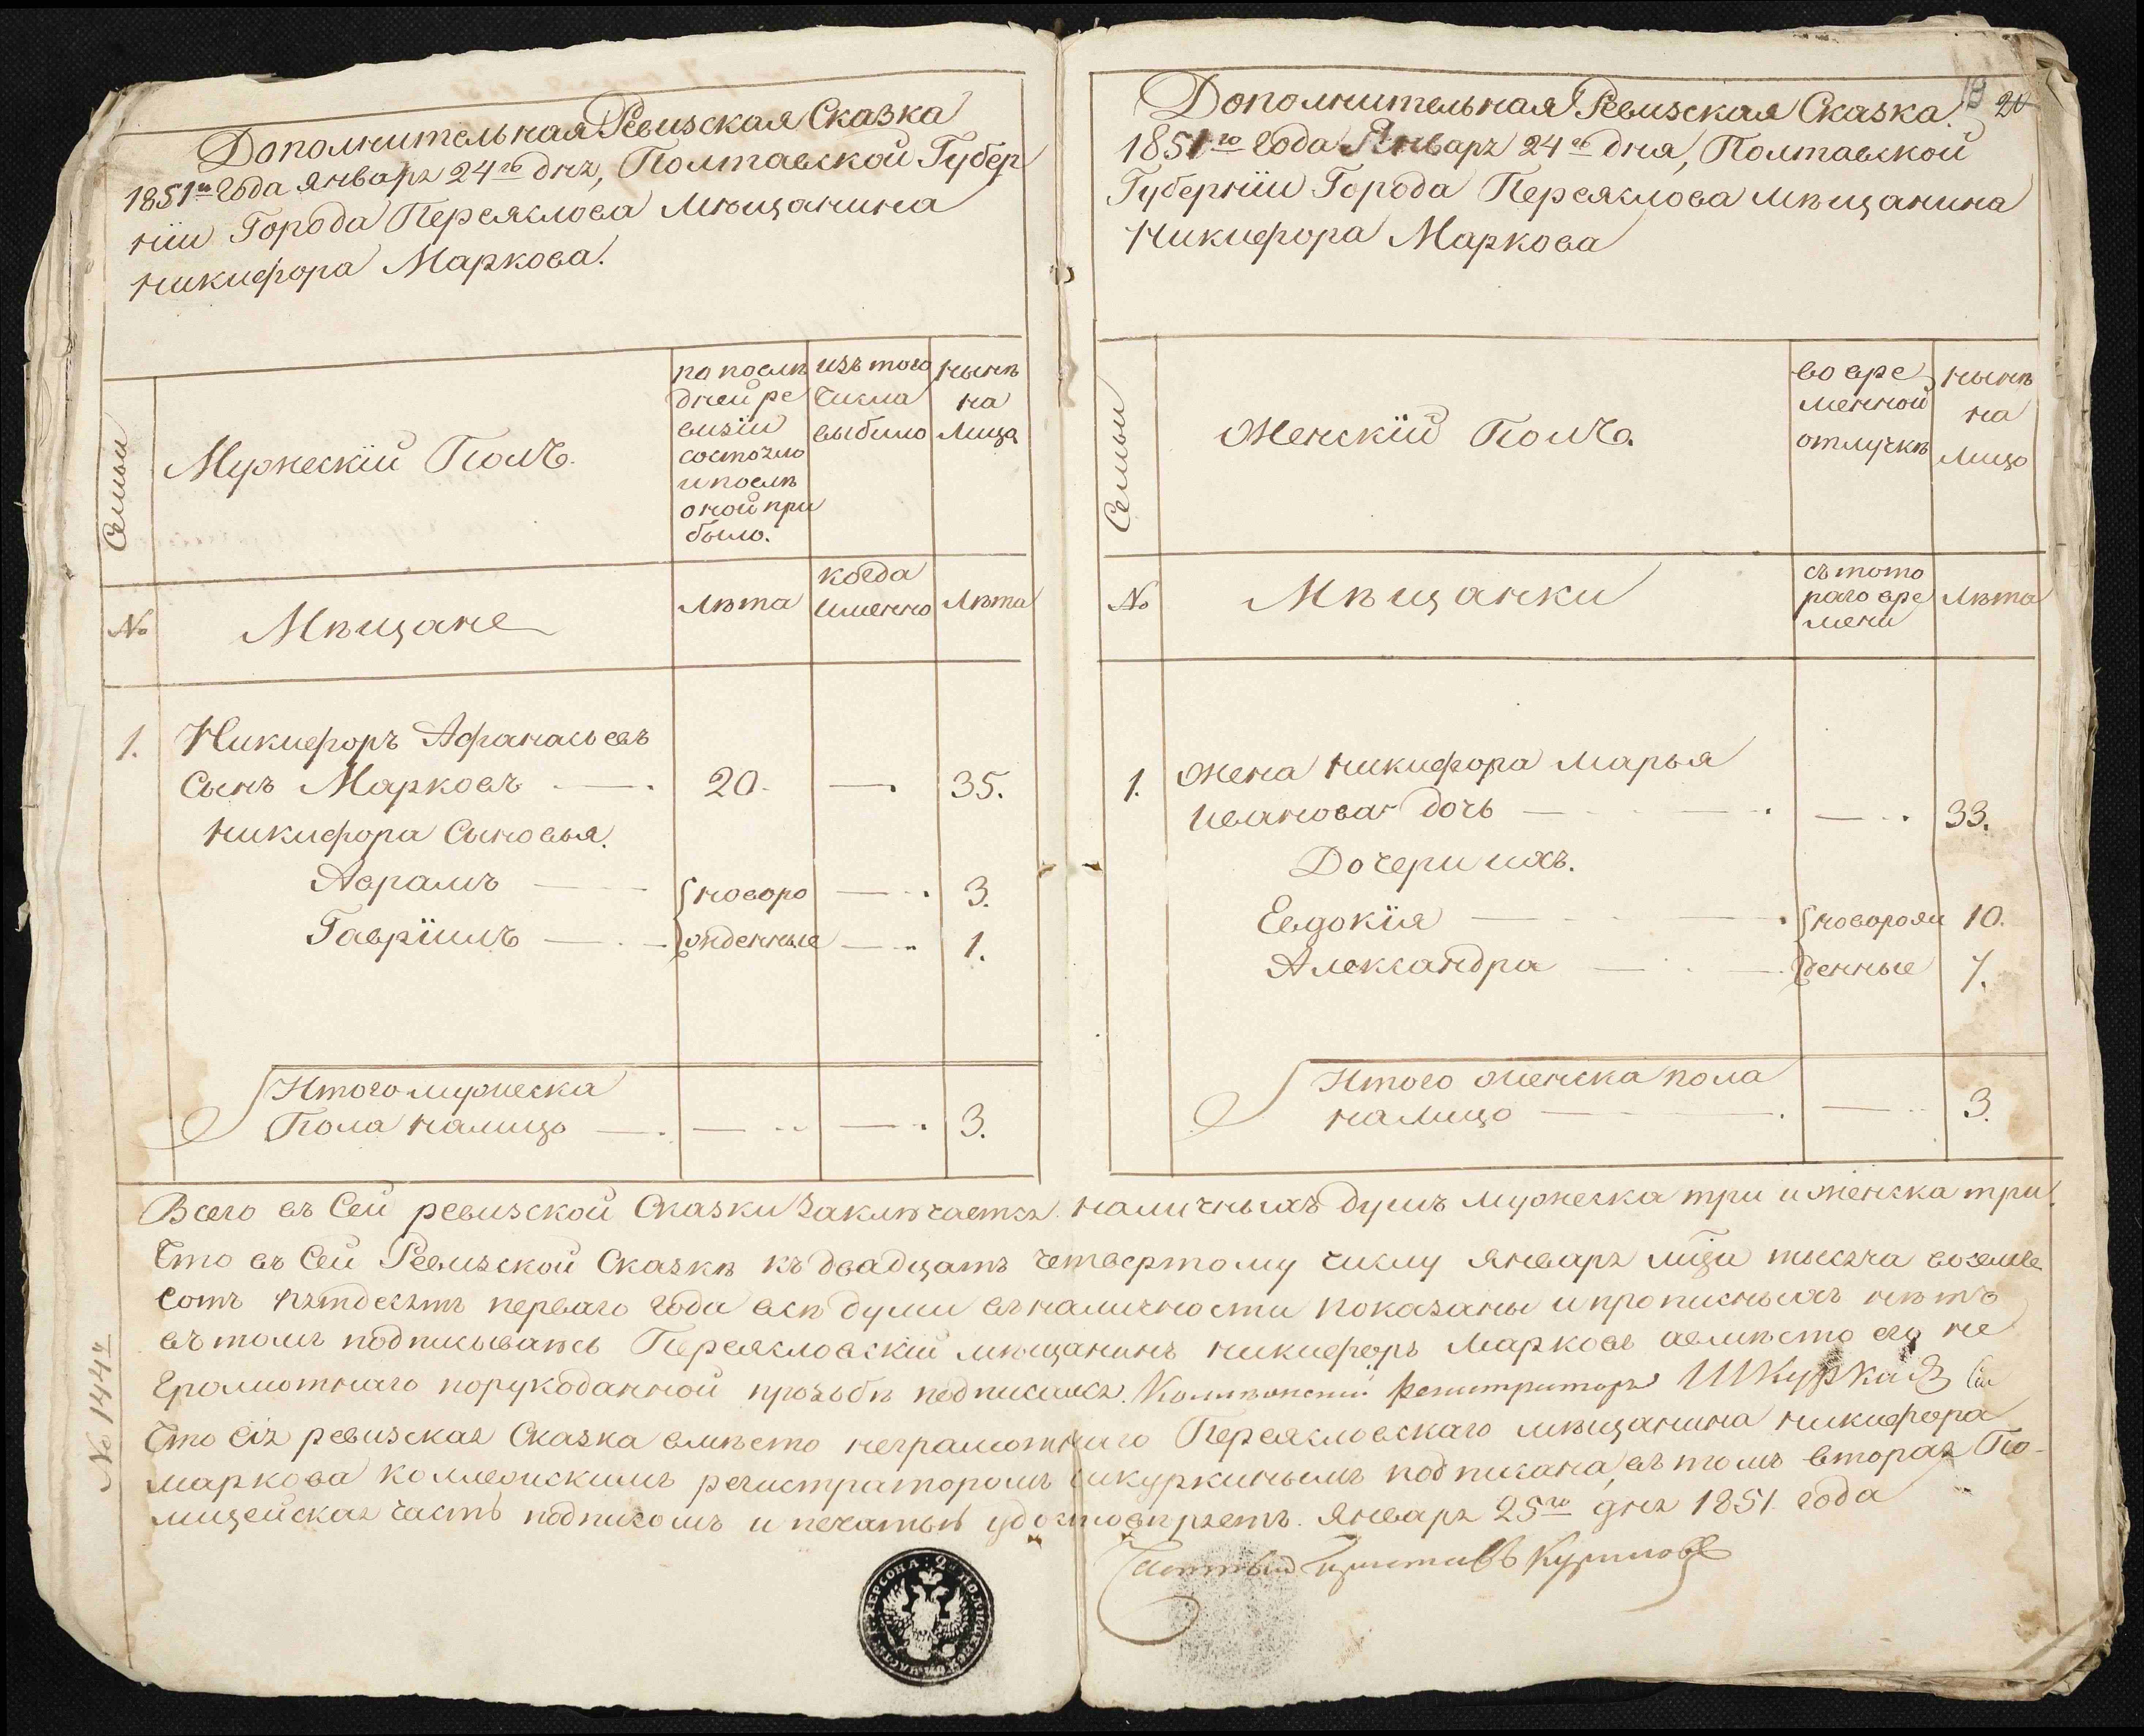 Дополнительная Ревизская Сказка
1851го Года Января 24го дня, Полтавской Губер
нïи Города Переяслова Мѣщанина
Никифора Маркова.
Семьи
Мужескïй Полъ.
по послѣ
дней ре
визïи
состояло
и послѣ
оной при
было.
изъ того
числа
выбыло
нынѣ
на
Лица
№
Мѣщане
Лѣта
когда
именно
Лѣта
1.
Никифоръ Афанасьевъ
Сынъ Марковъ — 20. — 35.
Никифора Сыновья.
Аврамъ — новоро — 3.
Гаврïилъ — жденные — 1.
Итого мужеска
Пола налицо — — — 3.
Дополнительная Ревизская Сказка. 20
1851го Года Января 24го дня, Полтавской
Губернïи Города Переяслова мѣщанина
Никифора Маркова
Семьи
Женскïй Полъ.
во вре
менной
отлучкѣ
нынѣ
на
Лицо
№
Мѣщанки
съ кото
раго вре
мени
Лѣта
1.
Жена Никифора Марья
Иванова дочь — — 33.
Дочери ихъ.
Евдокïя — новорож 10.
Александра — денные 7.
Итого женска пола
налицо — — 3.
Всего въ Сей ревизской Сказки Заключается наличныхъ душъ мужеска три и женска три.
Что въ Сей Ревизской Сказкѣ къ двадцать четвертому числу Января мца тысяча восемь
сотъ пятдесятъ перваго года всѣ души въ наличности показаны и прописныхъ нѣтъ
въ томъ подписываюсь Переясловскïй мѣщанинъ Никифоръ Марковъ а вмѣсто его не
грамотнаго по рукоданной прозьбѣ подписался. Регистраторъ
Что сiя ревизская Сказка вмѣсто неграмотнаго Переясловскаго мѣщанина Никифора
Маркова коллежскимъ регистраторомъ Шкуркинымъ подписана, въ томъ вторая По-
лицейская часть подписомъ и печатью удостовѣряетъ. Января 25го дня 1851 года
Частный Приставъ
№ 144й